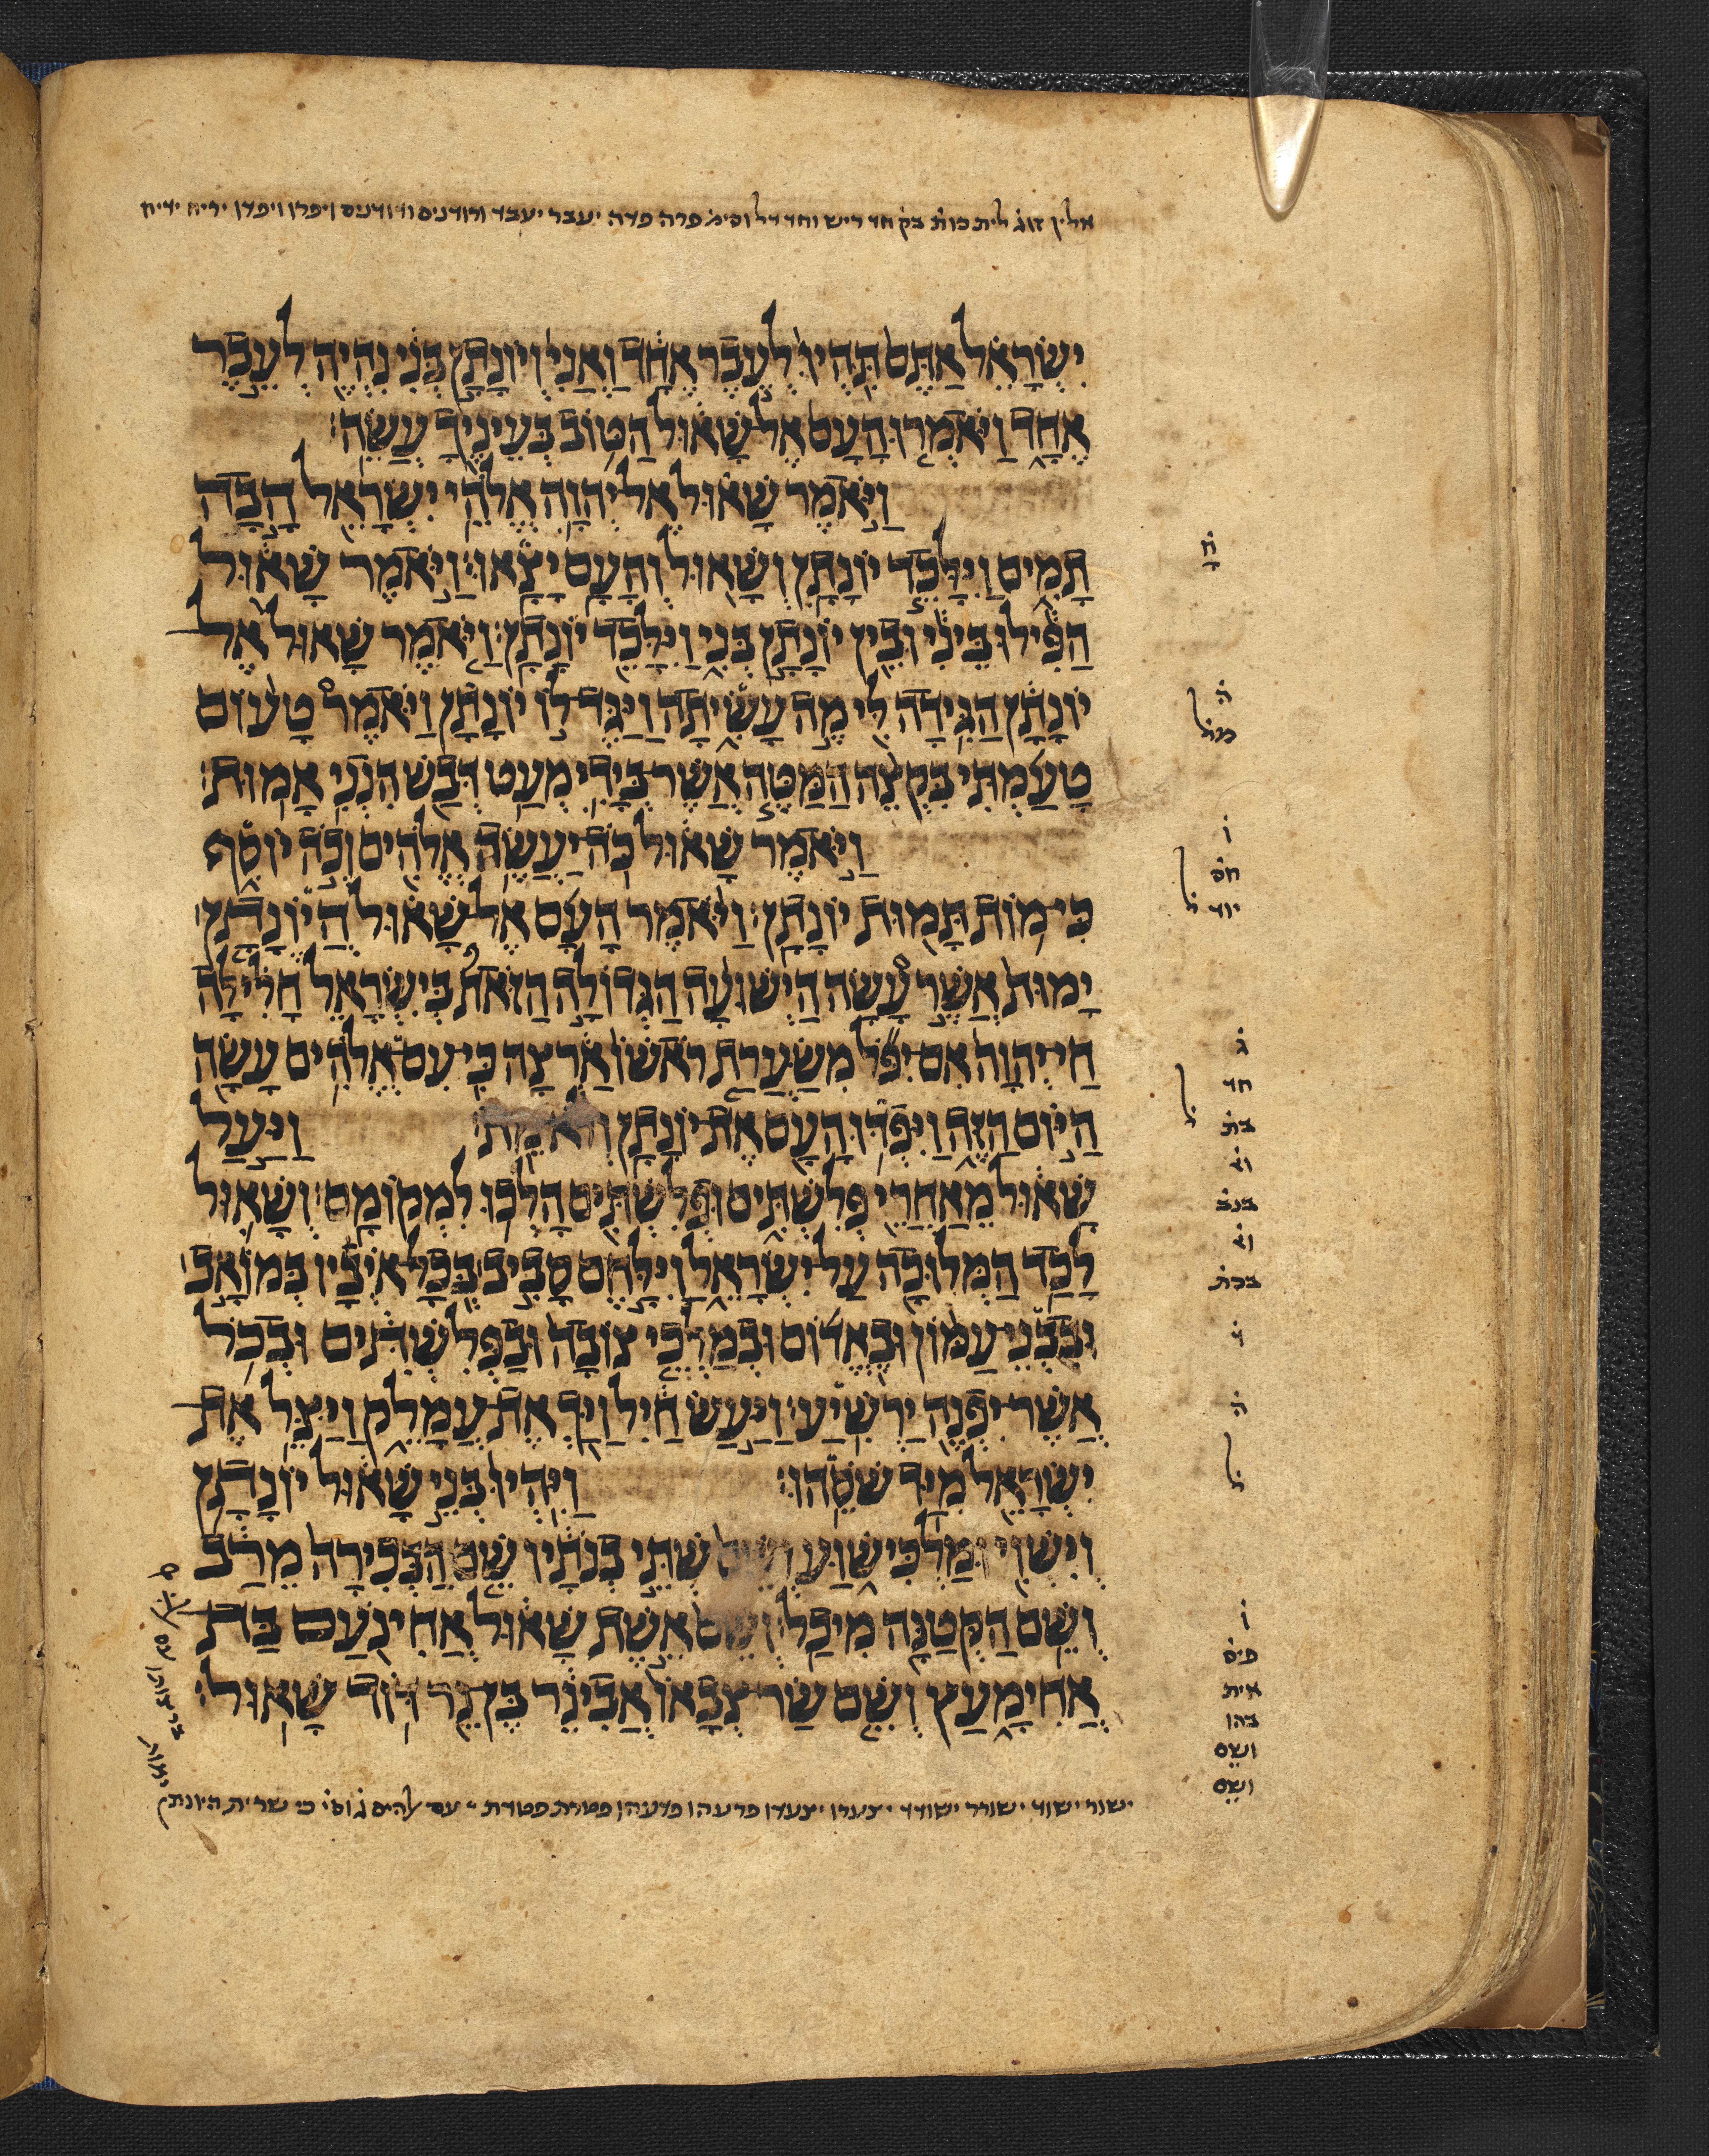 אלין זוג לית כות בק חד ריש וחד דל וסימ פרה פדה יעבר יעבד ורודנים ודודנים ויפרו ויפדו יריח ידיח
יִשְׂרָאֵל אַתֶּם תִּהְיוּ לְעֵבֶר אֶחָד וַאֲנִי וְיוֹנָתָן בְּנִי נִהְיֶה לְעֵבֶר
אֶחָד וַיֹּאמְרוּ הָעָם אֶל שָׁאוּל הַטּוֹב בְּעֵינֶיךָ עֲשֵׂה׃
וַיֹּאמֶר שָׁאוּל אֶל יְהוָה אֱלֹהֵי יִשְׂרָאֵל הָבָה
תָמִים וַיִּלָּכֵד יוֹנָתָן וְשָׁאוּל וְהָעָם יָצָאוּ׃ וַיֹּאמֶר שָׁאוּל
הַפִּילוּ בֵּינִי וּבֵין יוֹנָתָן בְּנִי וַיִּלָּכֵד יוֹנָתָן׃ וַיֹּאמֶר שָׁאוּל אֶל
יוֹנָתָן הַגִּידָה לִּי מֶה עָשִׂיתָה וַיַּגֶּד לוֹ יוֹנָתָן וַיֹּאמֶר טָעוֹם
טָעַמְתִּי בִּקְצֵה הַמַּטֶּה אֲשֶׁר בְּיָדִי מְעַט דְּבַשׁ הִנְנִי אָמוּת׃
וַיֹּאמֶר שָׁאוּל כֹּה יַעֲשֶׂה אֱלֹהִים וְכֹה יוֹסִף
כִּי מוֹת תָּמוּת יוֹנָתָן׃ וַיֹּאמֶר הָעָם אֶל שָׁאוּל הֲיוֹנָתָן
יָמוּת אֲשֶׁר עָשָׂה הַיְשׁוּעָה הַגְּדוֹלָה הַזֹּאת בְּיִשְׂרָאֵל חָלִילָה
חַי יְהוָה אִם יִפֹּל מִשַּׂעֲרַת רֹאשׁוֹ אַרְצָה כִּי עִם אֱלֹהִים עָשָׂה
הַיּוֹם הַזֶּה וַיִּפְדּוּ הָעָם אֶת יוֹנָתָן וְלֹא מֵת׃ וַיַּעַל
שָׁאוּל מֵאַחֲרֵי פְּלִשְׁתִּים וּפְלִשְׁתִּים הָלְכוּ לִמְקוֹמָם׃ וְשָׁאוּל
לָכַד הַמְּלוּכָה עַל יִשְׂרָאֵל וַיִּלָּחֶם סָבִיב בְּכָל אֹיְבָיו בְּמוֹאָב
וּבִבְנֵי עַמּוֹן וּבֶאֱדוֹם וּבְמַלְכֵי צוֹבָה וּבַפְּלִשְׁתִּים וּבְכֹל
אֲשֶׁר יִפְנֶה יַרְשִׁיעַ׃ וַיַּעַשׂ חַיִל וַיַּךְ אֶת עֲמָלֵק וַיַּצֵּל אֶת
יִשְׂרָאֵל מִיַּד שֹׁסֵהוּ׃ וַיִּהְיוּ בְּנֵי שָׁאוּל יוֹנָתָן
וְיִשְׁוִי וּמַלְכִּישׁוּעַ וְשֵׁם שְׁתֵּי בְנֹתָיו שֵׁם הַבְּכִירָה מֵרַב
וְשֵׁם הַקְּטַנָּה מִיכַל׃ וְשֵׁם אֵשֶׁת שָׁאוּל אֲחִינֹעַם בַּת
אֲחִימָעַץ וְשֵׁם שַׂר צְבָאוֹ אֲבִינֵר בֶּן נֵר דּוֹד שָׁאוּל׃
ישור ישוד ישורר ישודד יצערו יצעדו פרעהו פדעהו פטרת פטדת
ח
ה
מל
ו
חס
יוד
ג
חד
בת
בנב
ברת
ה
ו
פיס
אית
בהו
ושם
ושם